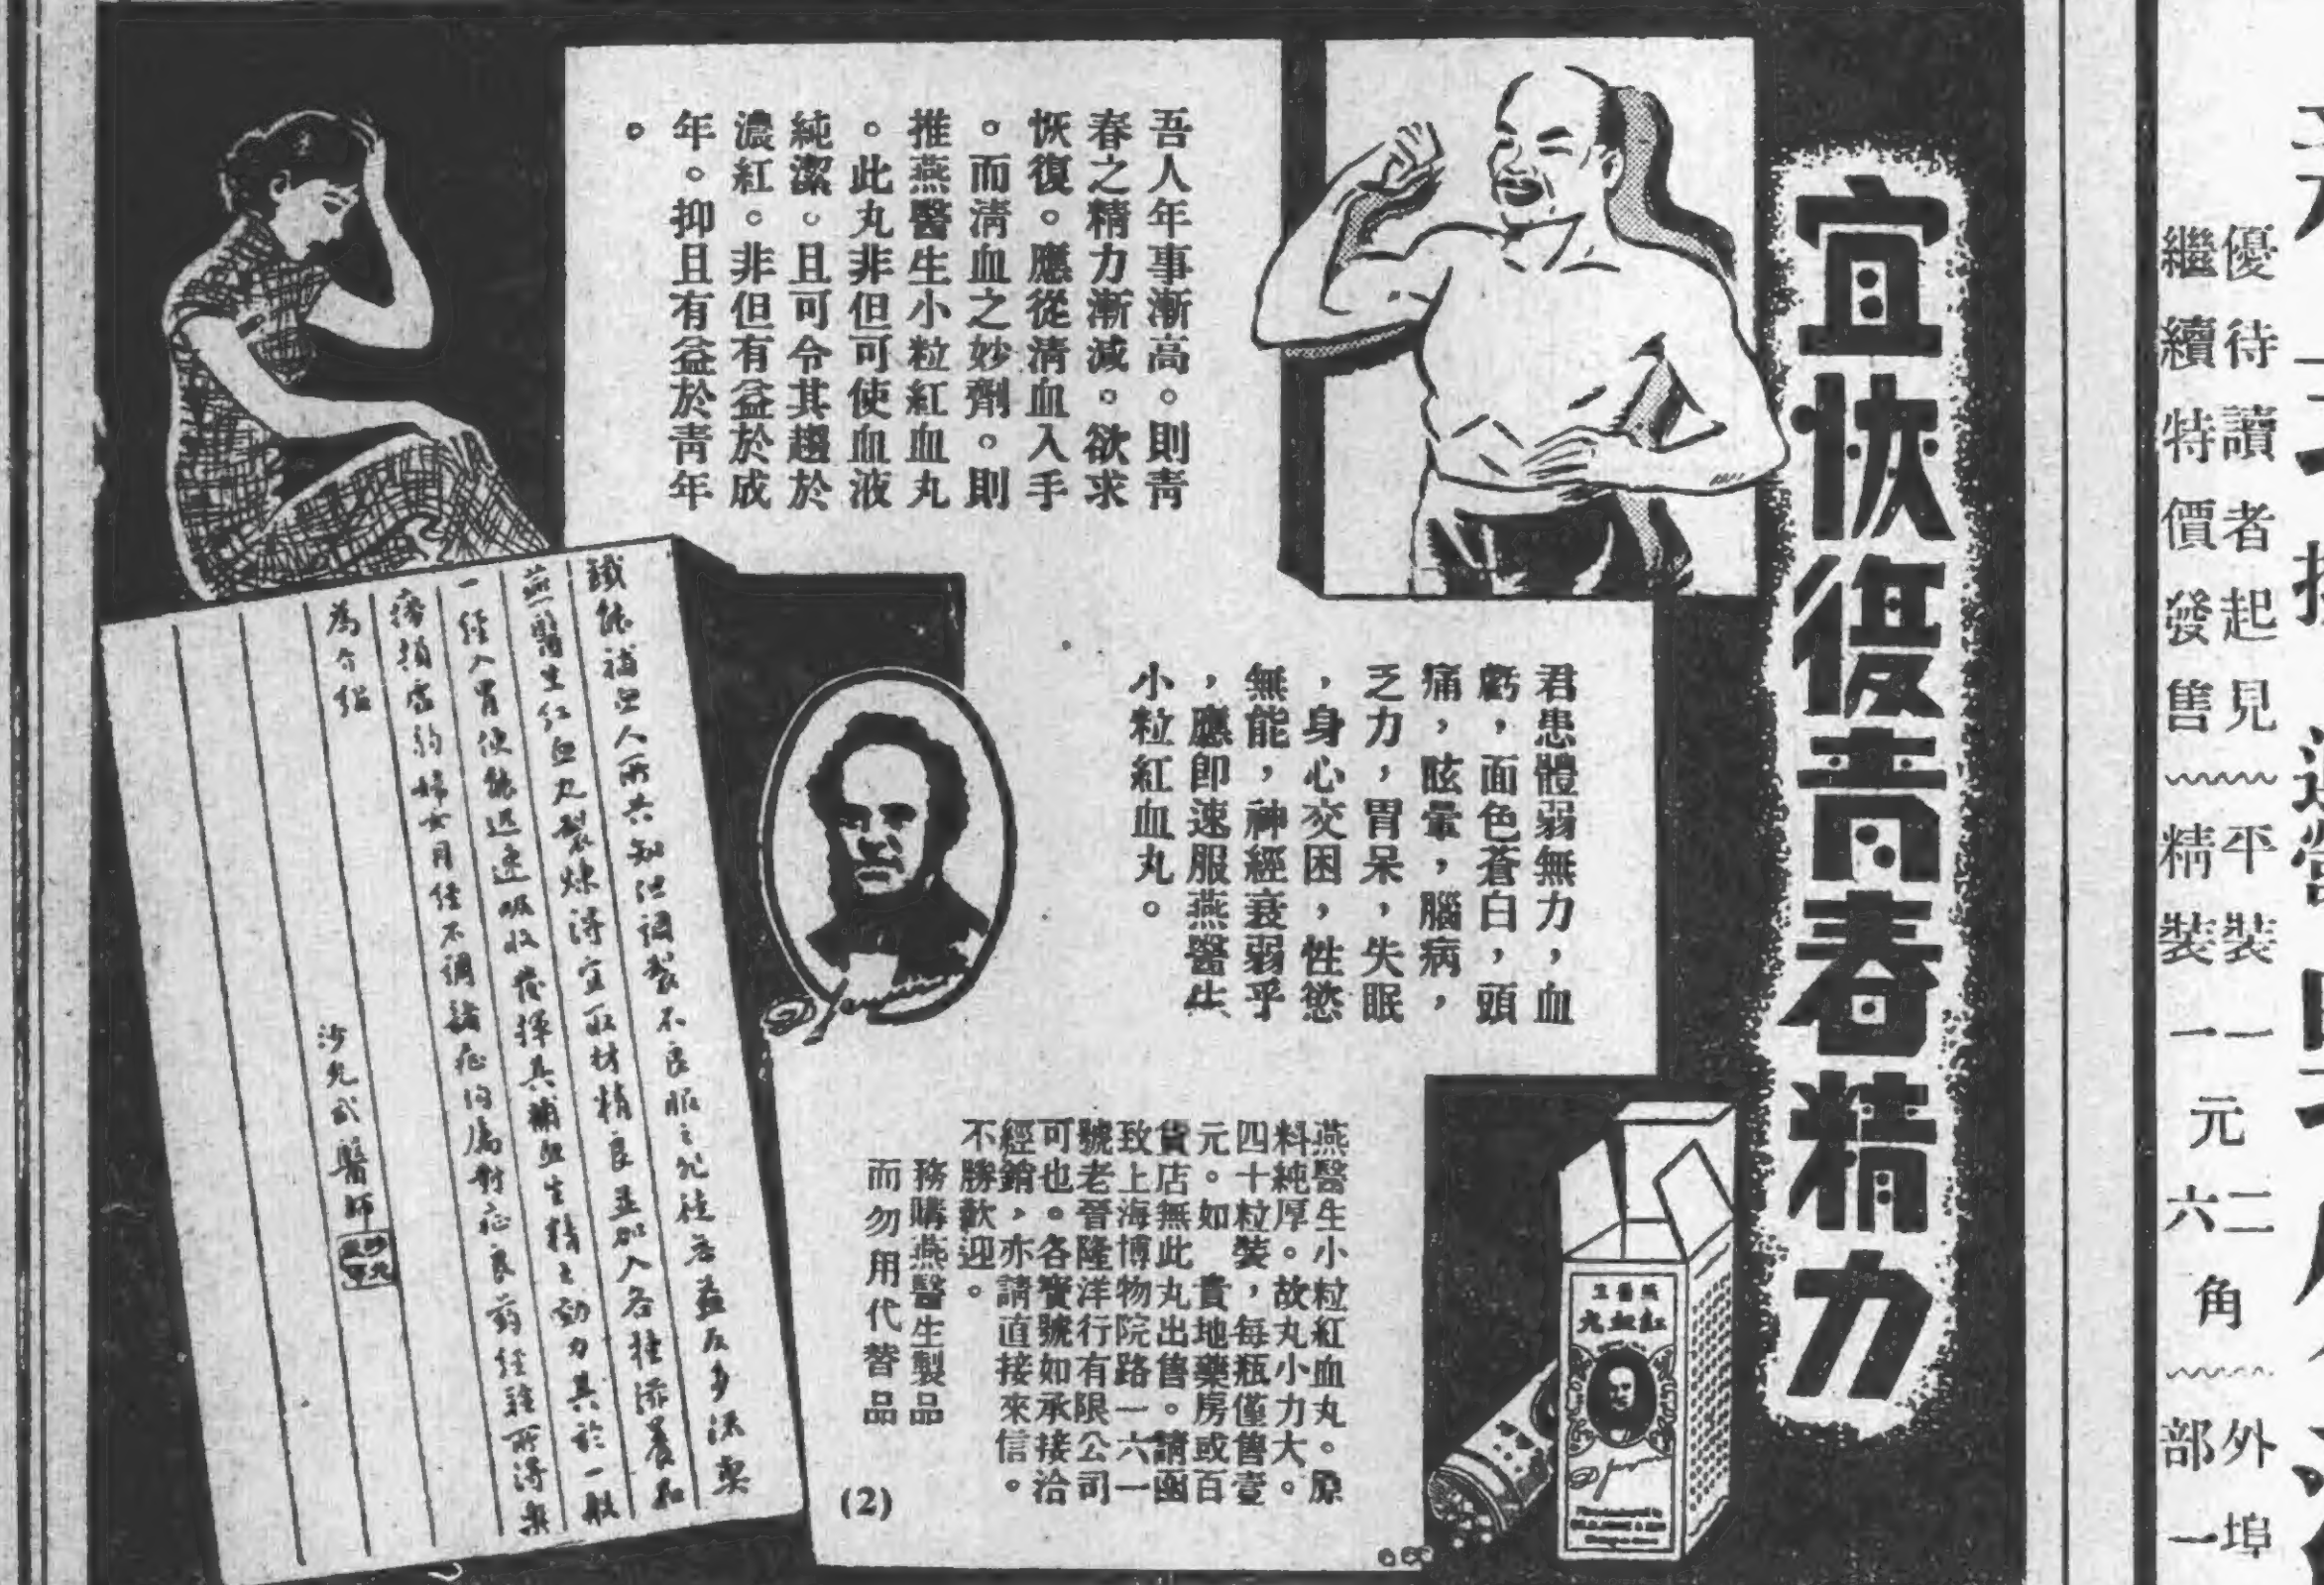 宜恢復青春精力
吾人年事漸高。則青
春之精力漸減。欲求
恢復。應從清血入手
。而清血之妙劑。則
推燕醫生小粒紅血丸
。此丸非但可使血液
純潔。且可令其趨於
濃紅。非但有益於成
年。抑且有益於青年
。
君患體弱無力，血
虧，面色蒼白，頭
痛，眩暈，腦病，
乏力，胃呆，失眠
，身心交困，性慾
無能，神經衰弱乎
，應即速服燕醫生
小粒紅血丸。
燕醫生小粒紅血丸。原
料純厚。故丸小力大。
四十粒裝，每瓶僅售壹
元。如 貴地藥房或百
貨店無此丸出售。請函
致上海博物院路一六一
號老晉隆洋行有限公司
可也。各寶號如承接洽
經銷，亦請直接來信。
不勝歡迎。
務購燕醫生製品
而勿用代替品
(2)
鐵能補血人所共知但調製不良服之見益反多流弊
燕醫生紅血丸製煉得宜取材精良並加入各種滋養品
一經入胃便能迅速吸收發揮其補血生精之動力其於一般
為介紹
醫師
紅血丸
優待讀者起見
繼續特價發售
平裝一元二角
精裝一元六角
外埠
部一